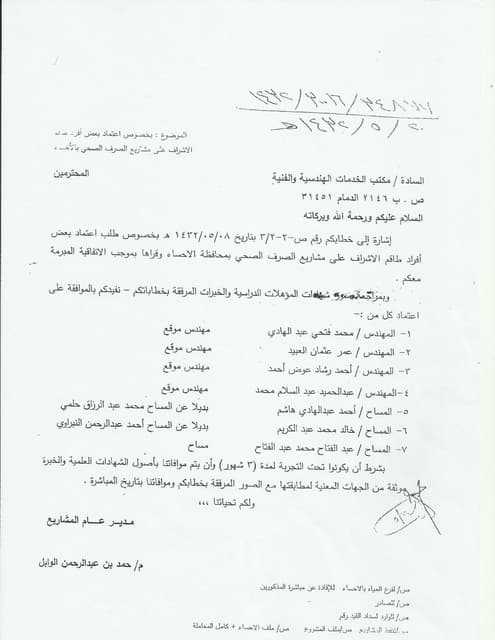 ١٤٣٢/٣٠١٦/٣٤٨
١٤٣٢/٥/٢٠هـ
الموضوع : بخصوص اعتماد بعض أفراد
الاشراف على مشاريع الصرف الصحي
السادة / مكتب الخدمات الهندسية والفنية
المحترمين
ص . ب ٢١٤٦ الدمام ٣١٤٥١
السلام عليكم ورحمة الله وبركاته
إشارة إلى خطابكم رقم ص-٢-٣/٢ بتاريخ ١٤٣٢/٠٥/٠٨ هـ بخصوص طلب اعتماد بعض
أفراد طاقم الاشراف على مشاريع الصرف الصحي بمحافظة الاحساء وقراها بموجب الاتفاقية المبرمة
معكم .
وبمراجعة صور شهادات المؤهلات الدراسية والخبرات المرفقة بخطاباتكم – نفيدكم بالموافقة على
اعتماد كل من :-
١- المهندس / محمد فتحي عبد الهادي مهندس موقع
٢- المهندس / عمر عثمان العبيد مهندس موقع
٣- المهندس / أحمد رشاد عوض أحمد مهندس موقع
٤- المهندس / عبدالحميد عبد السلام محمد مهندس موقع
٥- المساح / أحمد عبدالهادي هاشم بديلا عن المساح محمد عبد الرزاق حلمي
٦- المساح / خالد محمد عبد الكريم بديلا عن المساح أحمد عبدالرحمن النبراوي
٧- المساح / عبد الفتاح محمد عبد الفتاح مساح
بشرط أن يكونوا تحت التجربة لمدة (٣ شهور) وأن يتم موافاتنا بأصول الشهادات العلمية والخبرة
موثقة من الجهات المعنية لمطابقتها مع الصور المرفقة بخطابكم وموافاتنا بتاريخ المباشرة .
ولكم تحياتنا ،،،
مدير عام المشاريع
م/ حمد بن عبدالرحمن الوابل
ص/ لفرع المياه بالاحساء للإفادة عن مباشرة المذكورين
ص/ للصادر
ص/ للوارد لسداد القيد رقم
ص/ملف المشروع ص/ ملف الاحساء + كامل المعاملة